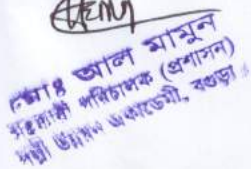 মোঃ আল মামুন
সহকারী পরিচালক (প্রশাসন)
পল্লী উন্নয়ন একাডেমী, বগুড়া।